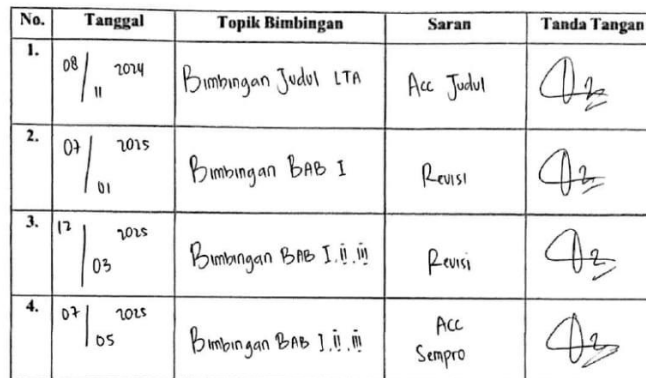 No. Tanggal Topik Bimbingan Saran Tanda Tangan
1. 08/11 2024 Bimbingan Judul LTA Acc Judul
2. 07/01 2025 Bimbingan BAB I Revisi
3. 12/03 2025 Bimbingan BAB I, ii, iii Revisi
4. 07/05 2025 Bimbingan BAB I, ii, iii Acc
Sempro